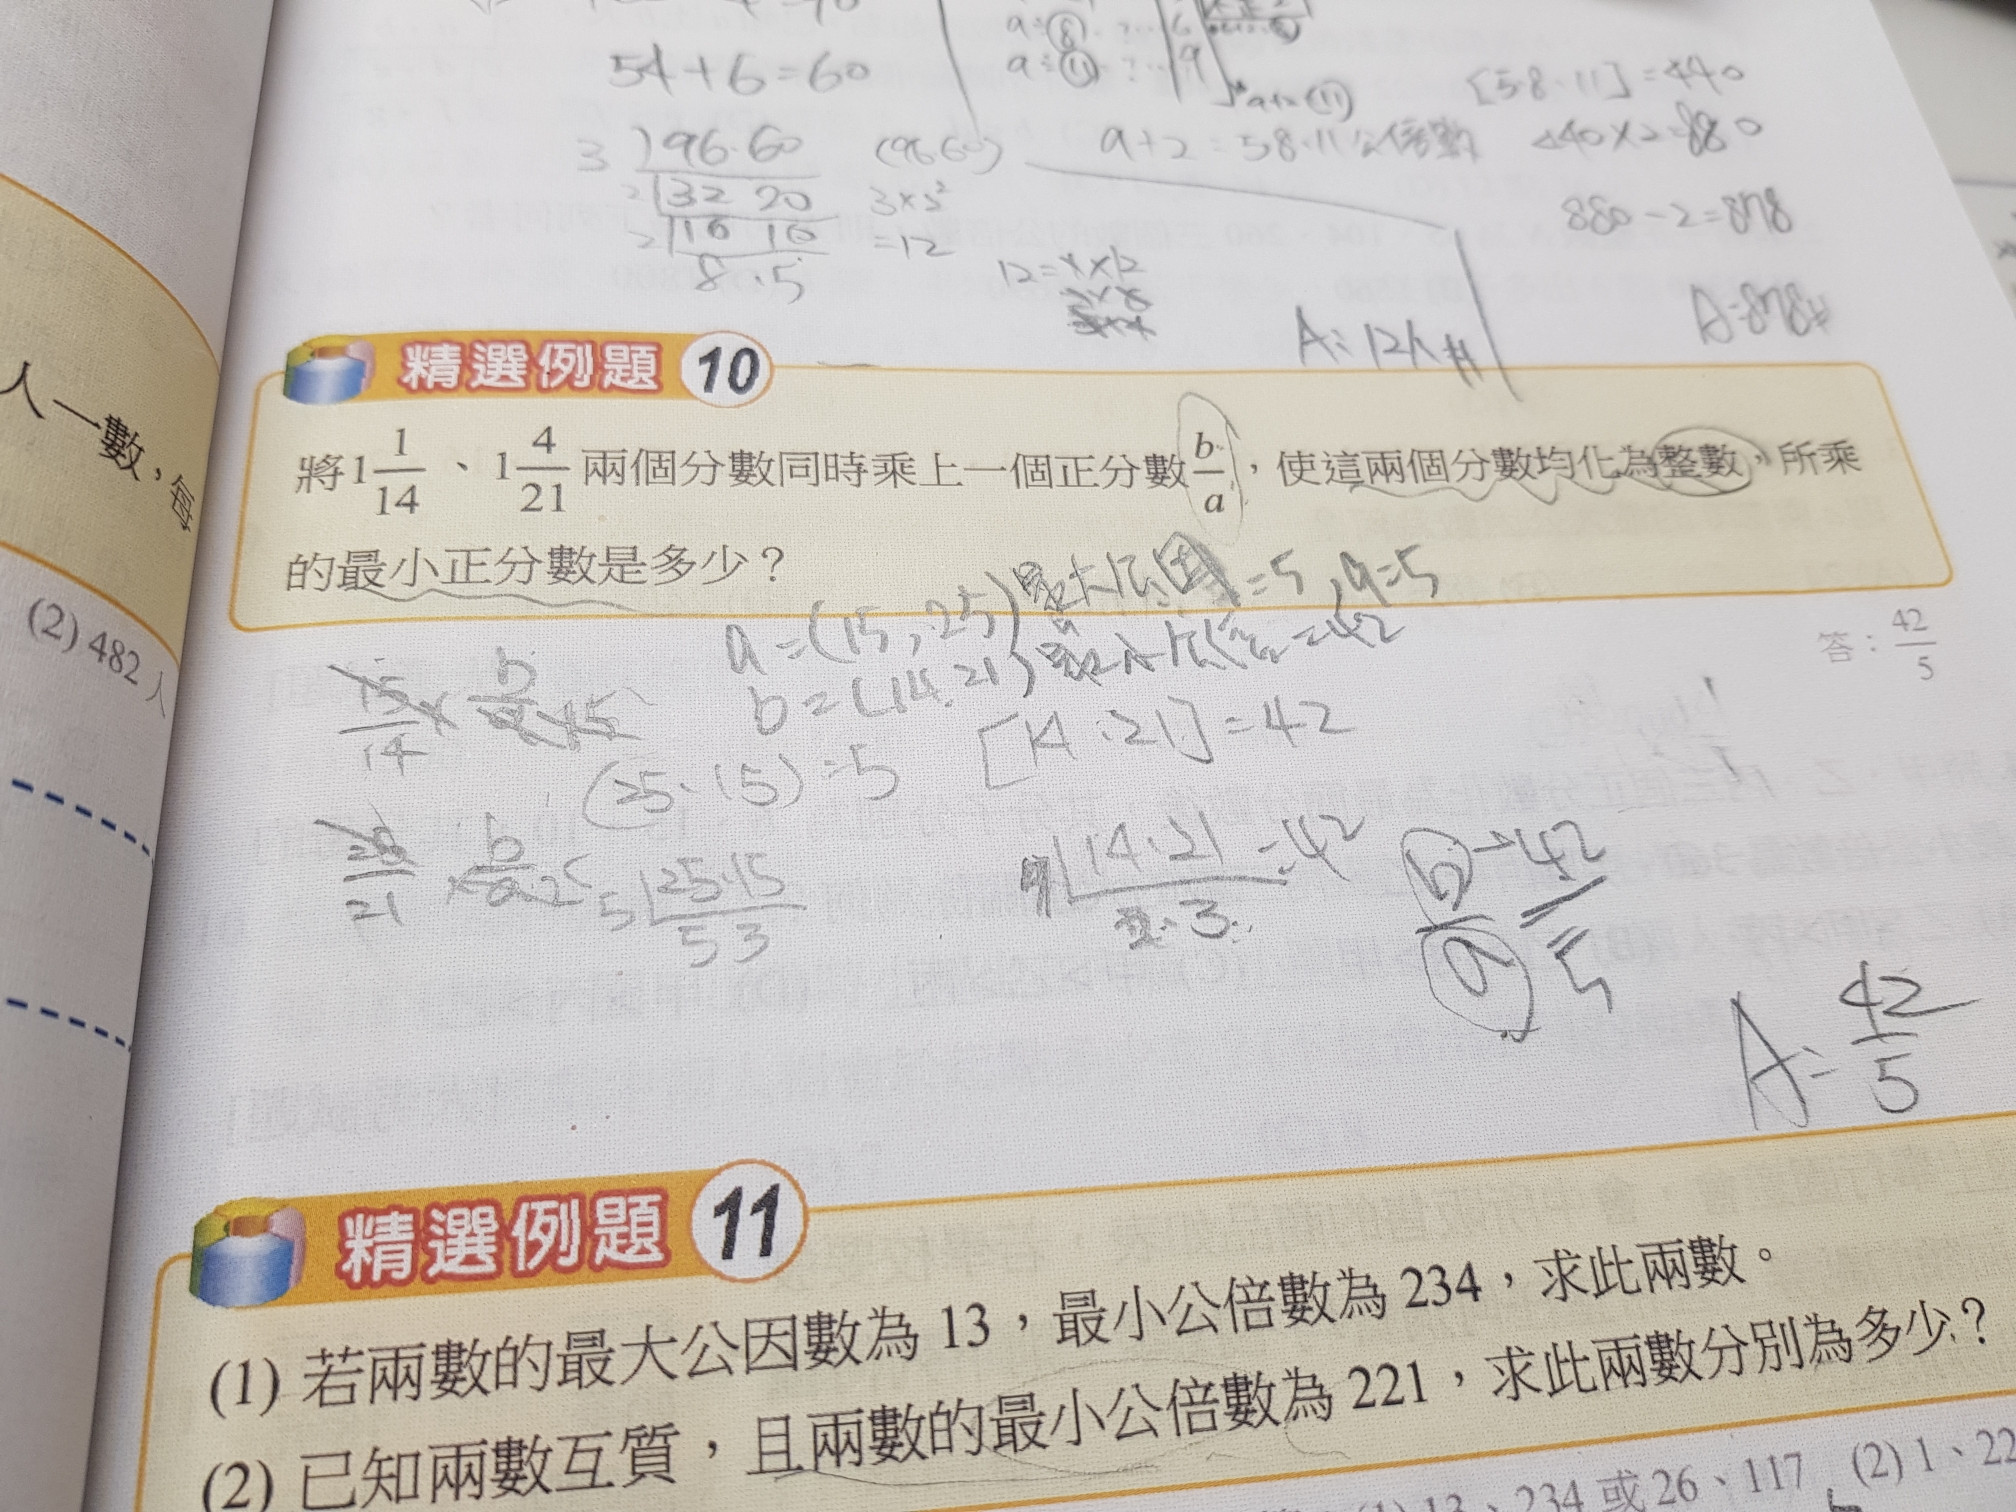 54+6=60
[5 8 · 11]=440
3 96·60 (96 60)
a+2=5 8·11公倍數 440×2=880
2 32 20
880-2=878
2 16 10 =12
8·5
A:12人#
A:878#
精選例題 10
將1 1/14、1 4/21 兩個分數同時乘上一個正分數 b/a,使這兩個分數均化為整數,所乘
的最小正分數是多少?
a=(15,25)最大公因=5,a=5
b=(14.21)最小公倍=42
答:42/5
15/14 × b/a
(25·15)=5 [14·21]=42
21
5 25·15 7 14·21=42 b/a→42/5
5 3 2·3
A=42/5
精選例題 11
(1) 若兩數的最大公因數為 13,最小公倍數為 234,求此兩數。
(2) 已知兩數互質,且兩數的最小公倍數為 221,求此兩數分別為多少?
(1) 13、234 或 26、117 (2) 1、22
人一數,每
(2) 482 人